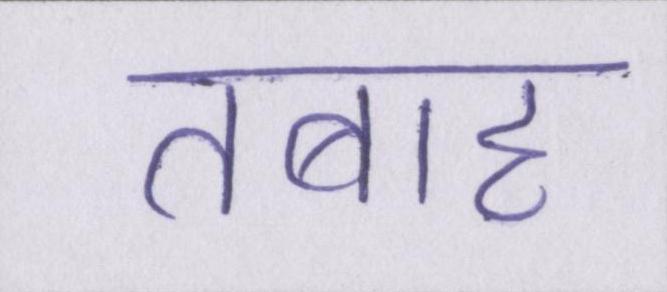 तबाह